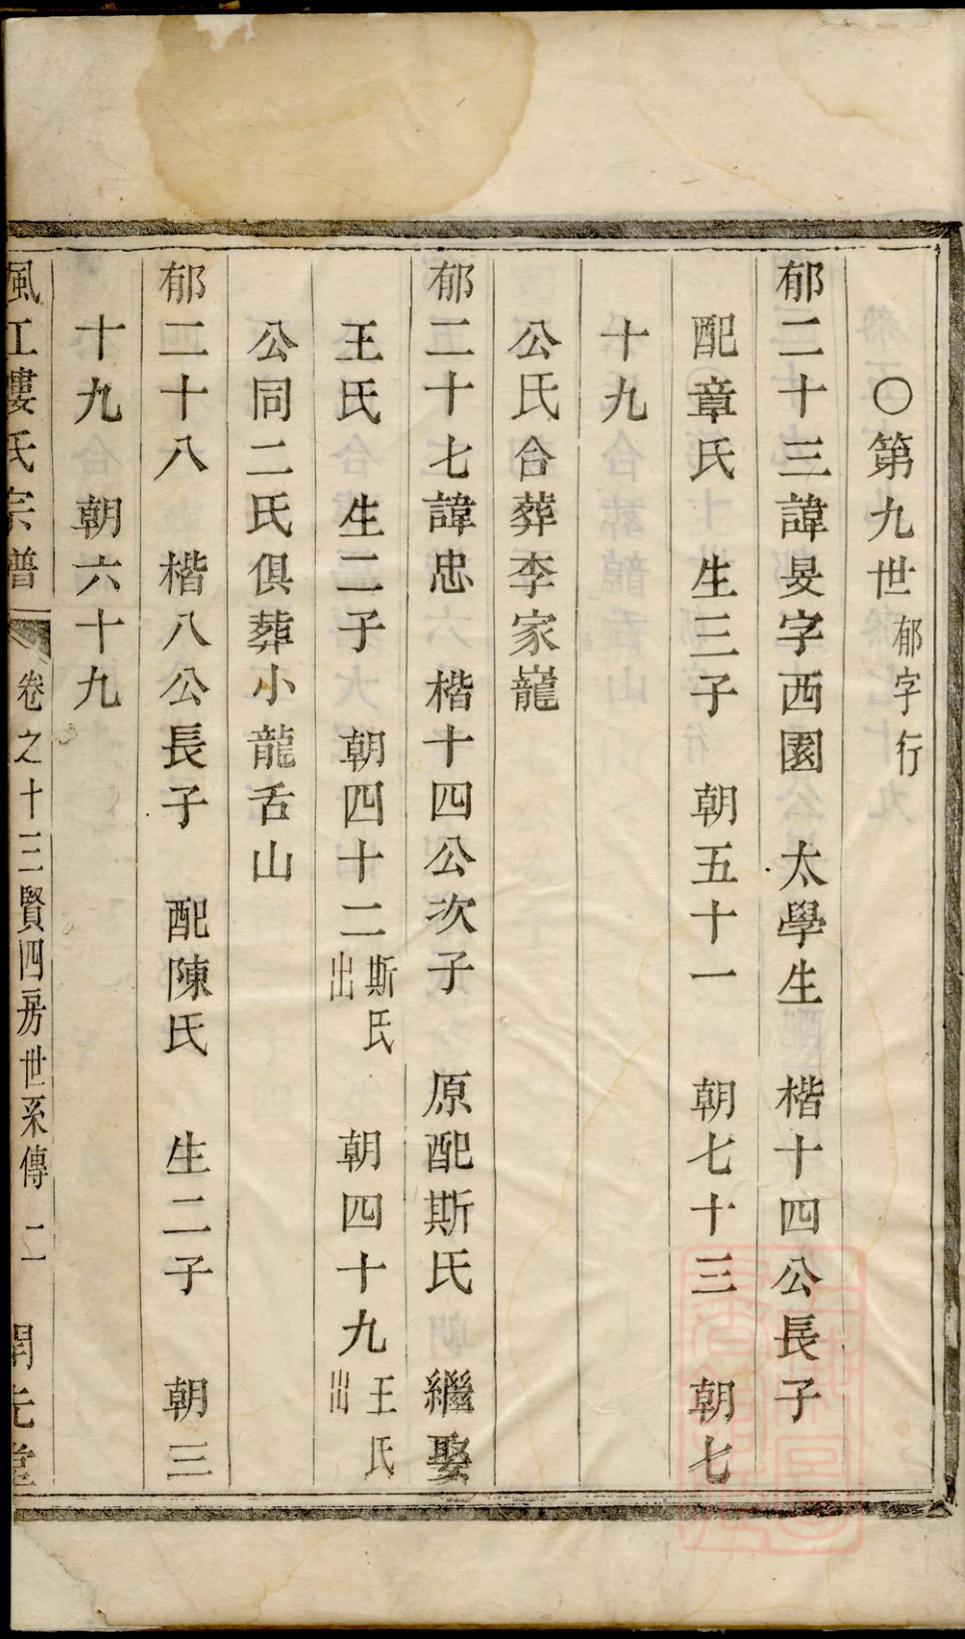 ○第九世郁字行
郁二十三諱旻字西園　太學生　楷十四公長子
配章氏　生三子　朝五十一　朝七十三　朝七
十九
公氏合葬李家巃
郁二十七諱忠　楷十四公次子　原配斯氏　繼娶
王氏　生二子　朝四十二斯氏出　朝四十九王氏出
公同二氏俱葬小龍舌山
郁二十八　楷八公長子　配陳氏　生二子　朝三
十九　朝六十九
風江婁氏宗譜　卷之十三賢四房世系傳　二